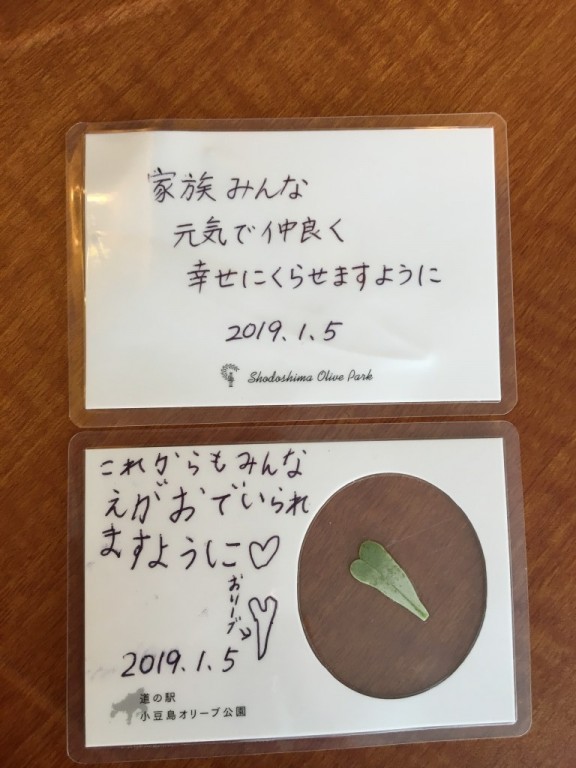 家族みんな
元気で仲良く
幸せにくらせますように
2019.1.5
Shodoshima Olive Park
これからもみんな
えがおでいられ
ますように♡
おりーブ
2019.1.5
道の駅
小豆島オリーブ公園